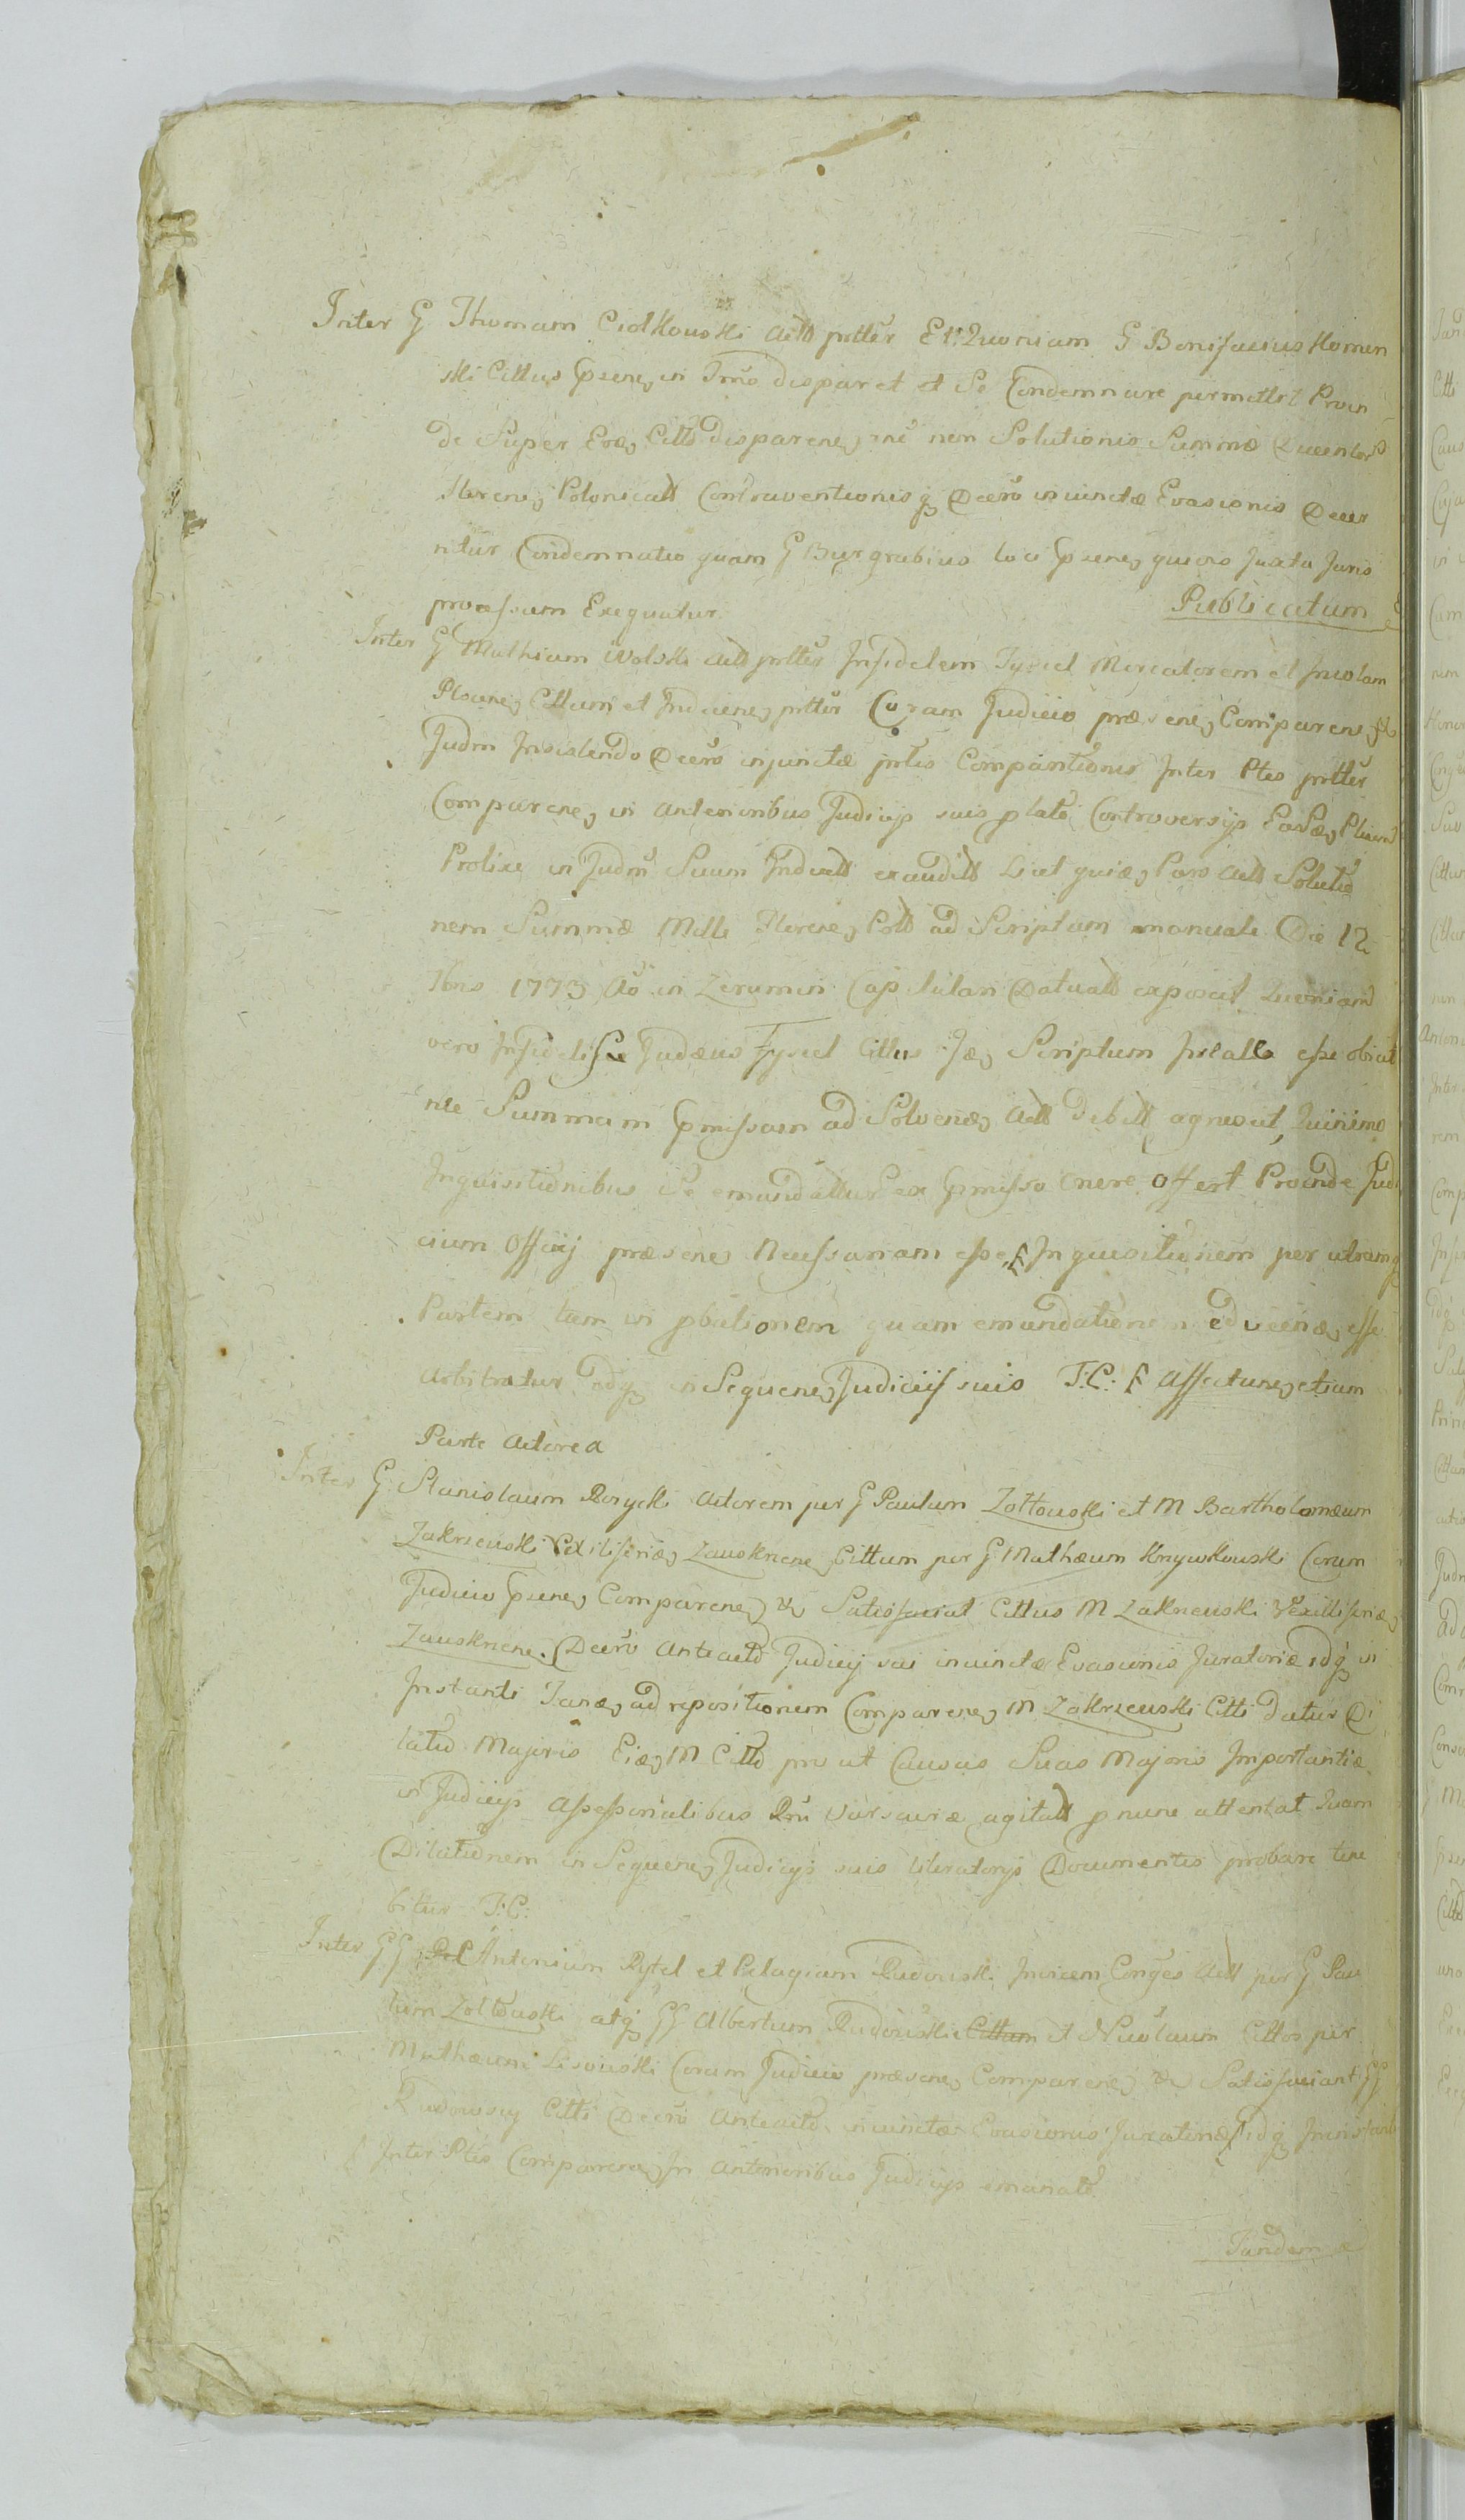 Inter G Thomam Ciolkowski Actt prtter Et: Quoniam G Bonifacius Komen
ski Cittus Gsene, in Trno disparet et se Condemnare permittit Proin
de Super Eoq, Citto disparene, rne non Solutionis Summæ Ducentor
florene, Polonicatt Contraventionisq Decro iniunctæ Evasionis Decer
nitur Condemnatio quam G Burgrabius loci Gsene, quivis Juxta Juris
processum Exequatur.
Publicatum
Inter G Mathiam Wolski Actt prtter Infidelem Tyviel Mercatorem et Incolam
Plocene, Cittum et Inducene, prtter Coram Judicio præsene, Comparene, &
Judm Insistendo Decro injunctæ prtis Compartionis Inter Ptes prtter
Comparene, in anterioribus Judicijs suis plate Controversijs
Prolixe in Judm Suum Inductt exauditt Licet quiæ, Pars Actt Solutio
nem Summæ Mille Florene, Pott ad Scriptum manuale Die 12
1773 Ao in Zeromin Capitulari Datuatt exposcit Quoniam
vero Infidelis Judæus Tyviel Cittus Scriptum esse obicit
nec Summam Gmissam ad Solvene, Actt debitt agnoscit, Quinimo
Inquisitionibus se emundatturs ex Gmisso onere offert Proinde Judi
cium Officij præsene, Necessariam esse Inquisitionem per utramq
Partem tam in pbationem quam emundationem educenæ, esse
arbitratur idq in Sequene, Judicijs suis T: C: F Affectune, etiam
Parte Actorea
Inter G Stanislaum Rosycki Actorem per G Paulum Zoltowski et M Bartholomæum
Zakrzewski Vexilliferiæ, Zauskriene, Cittum per G Mathæum Krzywkowski Coram
Judicio Gsene, Comparene, & Satisfaciat Cittus M Zakrzewski Vexilliferiæ,
Zauskriene, Decro Anteacto Judicij sui iniunctæ Evasionis Juratoriæ idq in
Instanti Janæ, ad repositionem Comparene, M Zakrzewski Citti datur Di
latio Majoris Eiæ, M Citto pro ut Causas Suas Majoris Importantiæ
in Judicijs Assessorialibus Rni Varsaviæ agitatt p nunc attentat Quam
Dilationem in Sequene, Judicijs suis literatorijs Documentis probare tene
bitur T: C:
Inter GG Antonium Rytel et Pelagiam Rudowski Invicem Conges Actt per G Pau
lum Zoltowski atq GG Albertum Rudowski Cittum et Nicolaum Cittos per
Mathæum Lisowski Coram Judicio præsene, Comparene, & Satisfaciant GG
Rudowscy Citti Decro Anteacto iniunctæ Evasionis Juratoriæ idq Ininstanti
Inter Ptes Comparene, In Anterioribus Judicijs emanato
Tandem